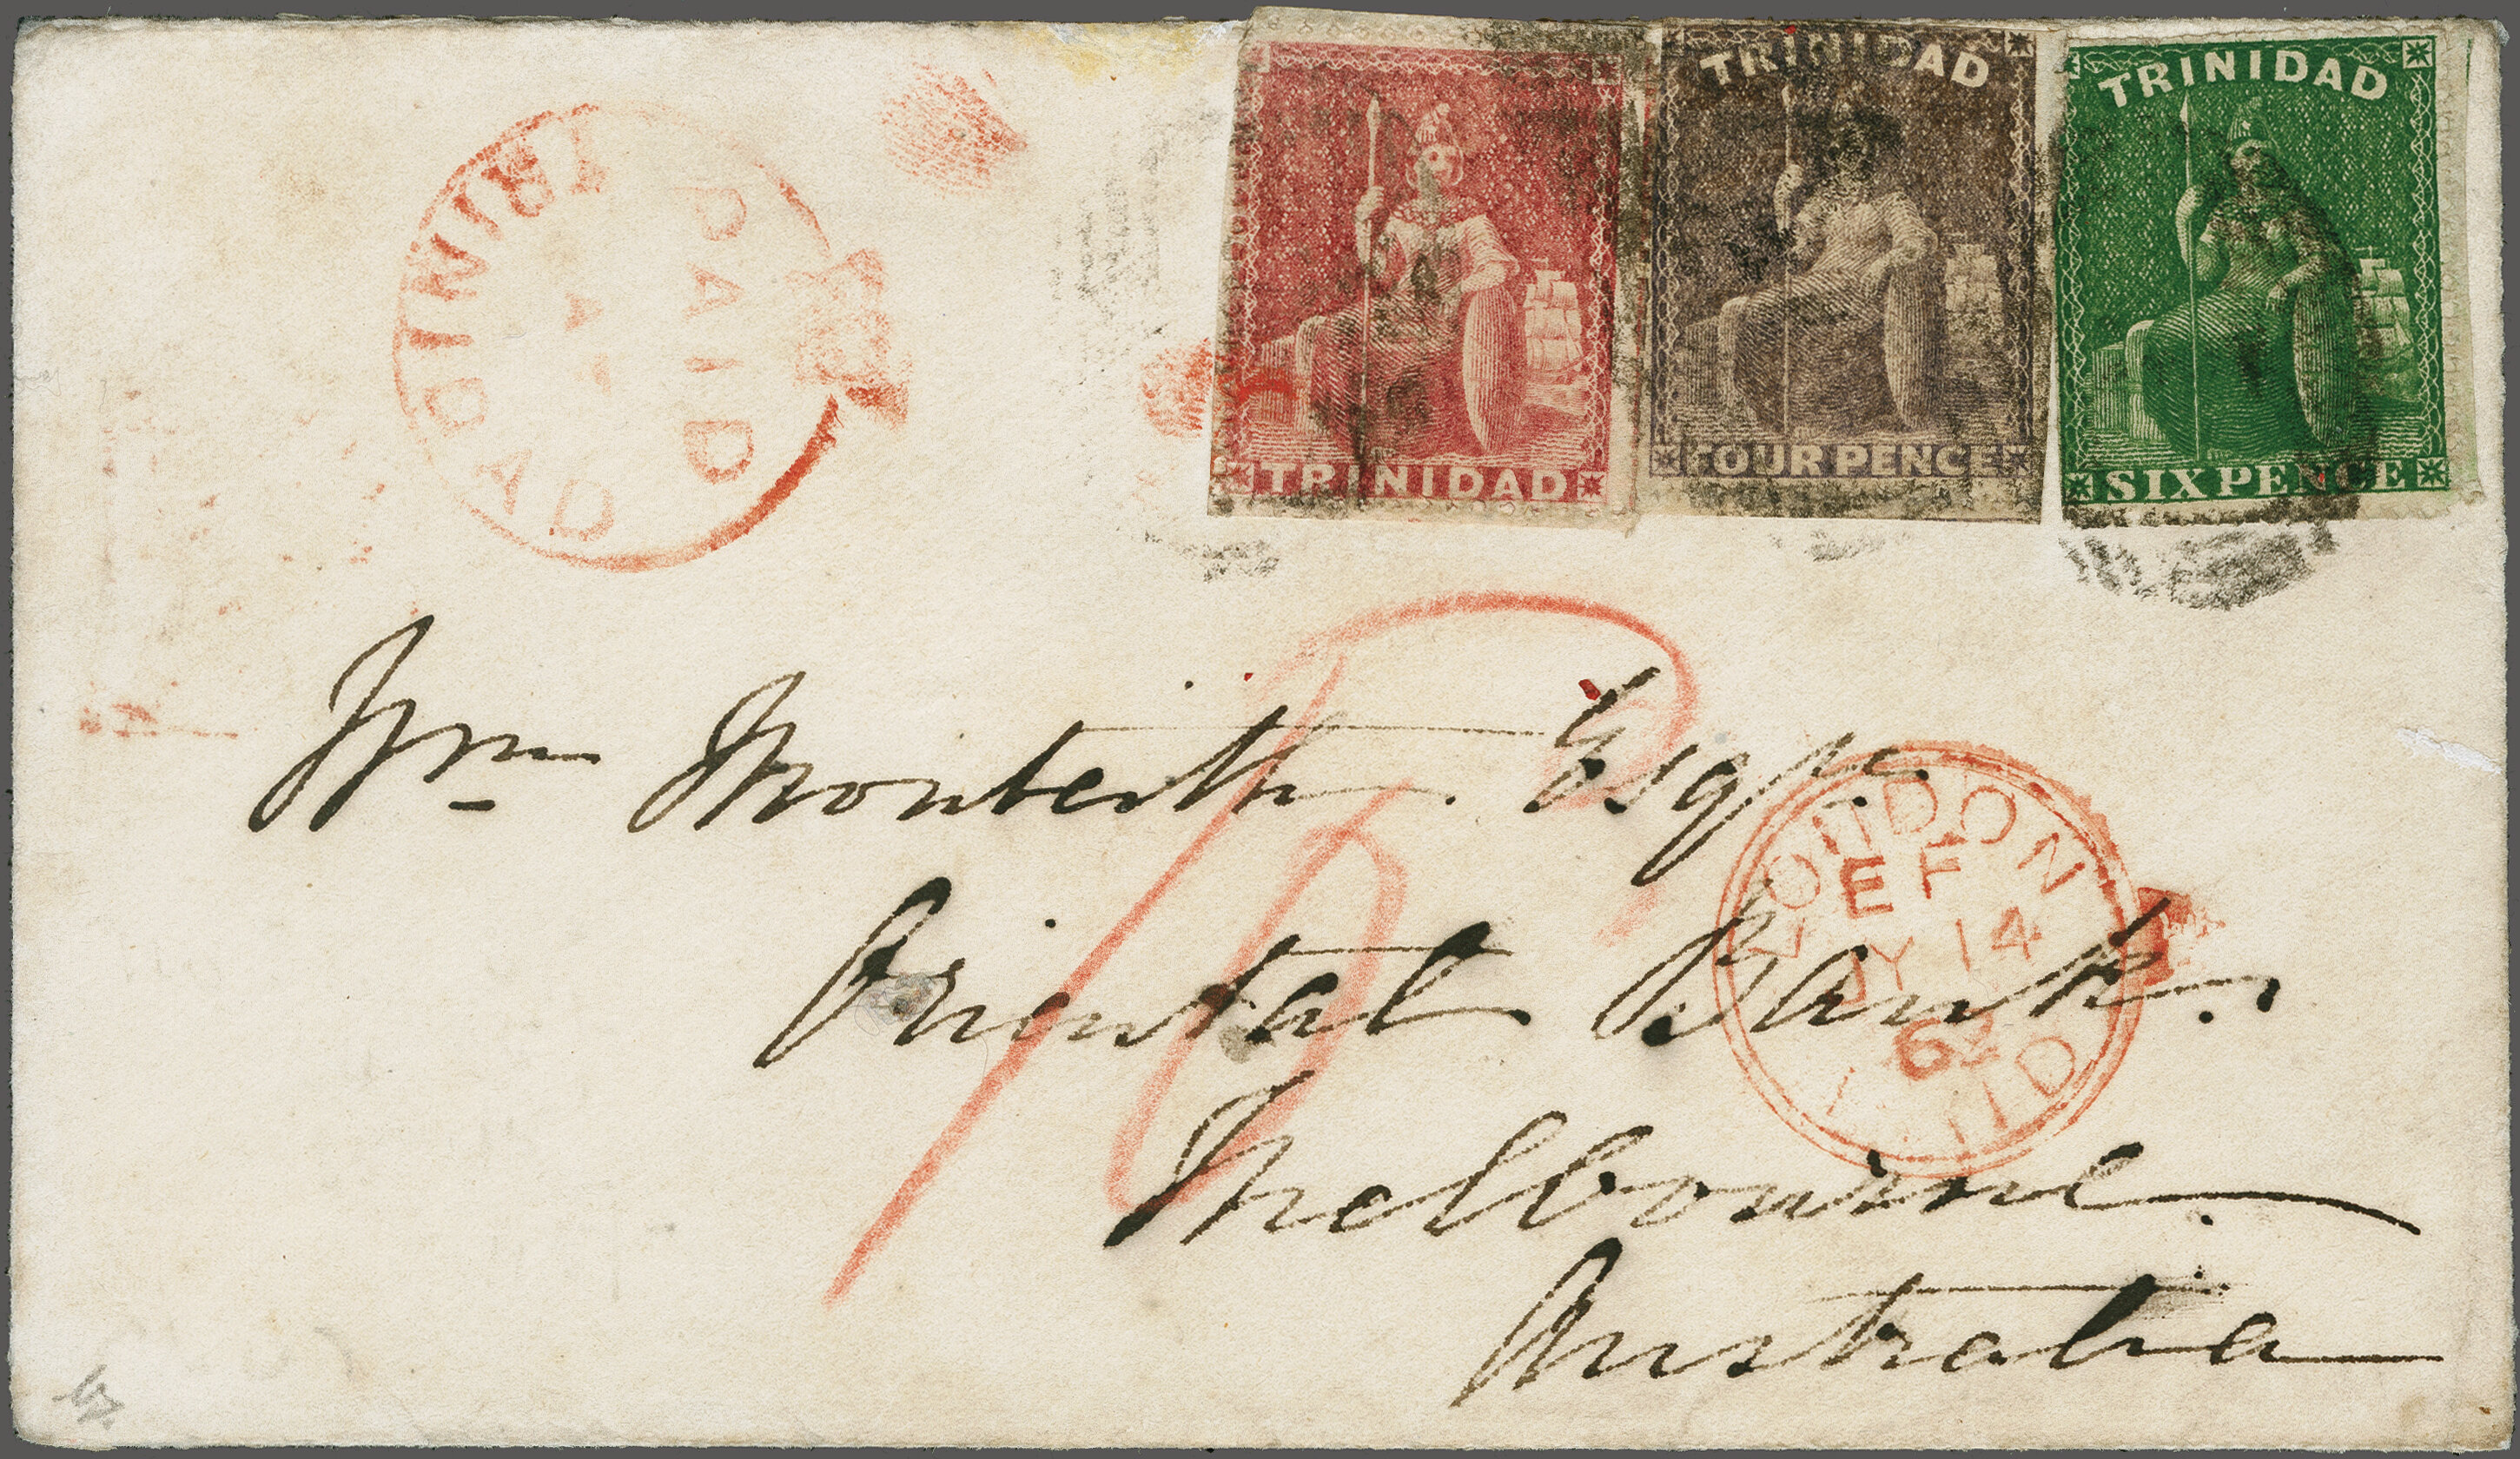 TRINIDAD
PAID
A
TRINIDAD
TRINIDAD
FOUR PENCE
TRINIDAD
SIX PENCE
Wm Monteith. Esqre.
Oriental Bank.
Melbourne.
Australia
LONDON
EF
JY 14
62
PAID